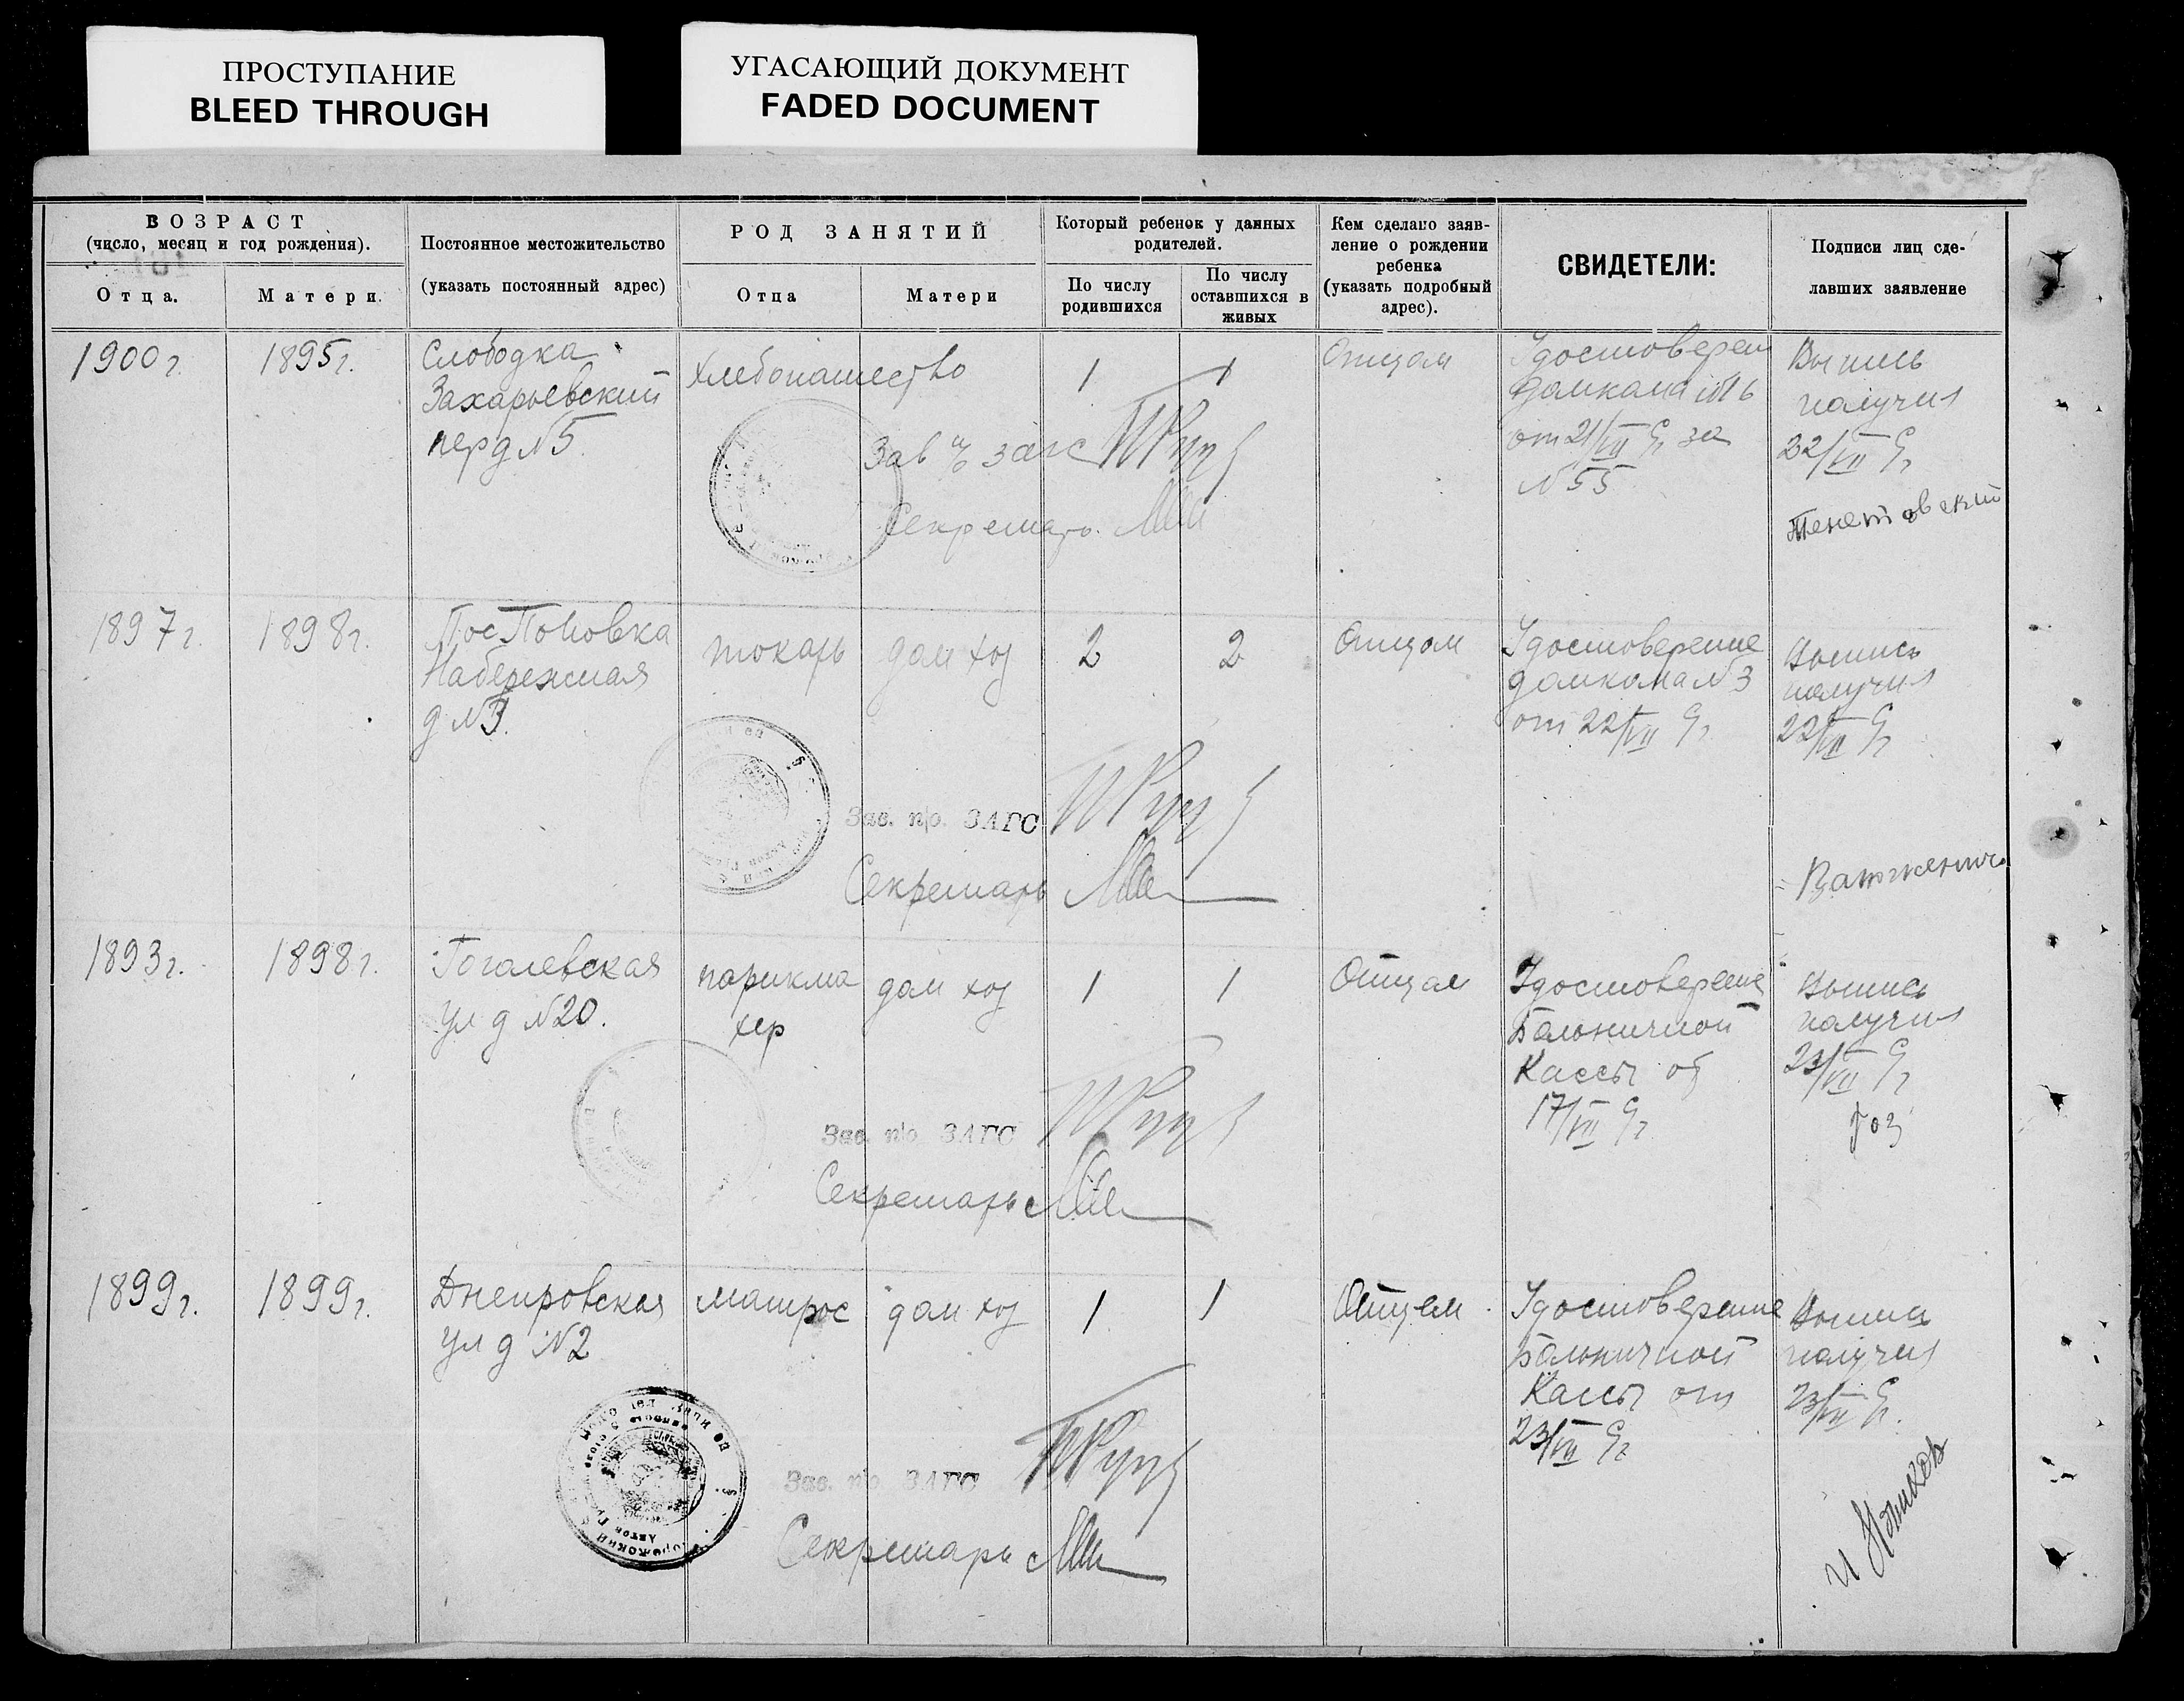 ПРОСТУПАНИЕ
BLEED THROUGH
УГАСАЮЩИЙ ДОКУМЕНТ
FADED DOCUMENT
ВОЗРАСТ
(число, месяц и год рождения).
Отца.
Матери.
Постоянное местожительство
(указать постоянный адрес)
РОД ЗАНЯТИЙ
Отца
Матери
Который ребенок у данных
родителей.
По числу
родившихся
По числу
оставшихся в
живых
Кем сделано заяв-
ление о рождении
ребенка
(указать подробный
адрес).
СВИДЕТЕЛИ:
Подписи лиц сде-
лавших заявление
1900 г.
1895 г.
Слободка
Захарьевский
пер д №5
Хлебопашество
1
1
Отцом
Удостоверен
домкома №6
от 21/VII 9 г за
№55
Выпись
получил
22/VII 9 г
Зав п/о загс
Секретарь
1897 г.
1898 г.
Пос Поповка
Набережная
д №3.
токарь
дом хоз
2
2
Отцом
Удостоверение
домкома №3
от 22/VII 9 г
Выпись
получил
22/VII 9 г
Зав. п/о. ЗАГС
Секретарь
1893 г.
1898 г.
Гоголевская
ул д №20.
парикма
хер
дом хоз
1
1
Отцом
Удостоверение
Больничной
Кассы от
17/VII 9 г
Выпись
получил
23/VII 9 г
Гоз
Зав. п/о ЗАГС
Секретарь
1899 г.
1899 г.
Днепровская
ул д №2
матрос
дом хоз
1
1
Отцем
Удостоверение
Больничной
Кассы от
23/VII 9 г
Выпись
получил
23/VII 9 г.
Зав. п/о ЗАГС
Секретарь